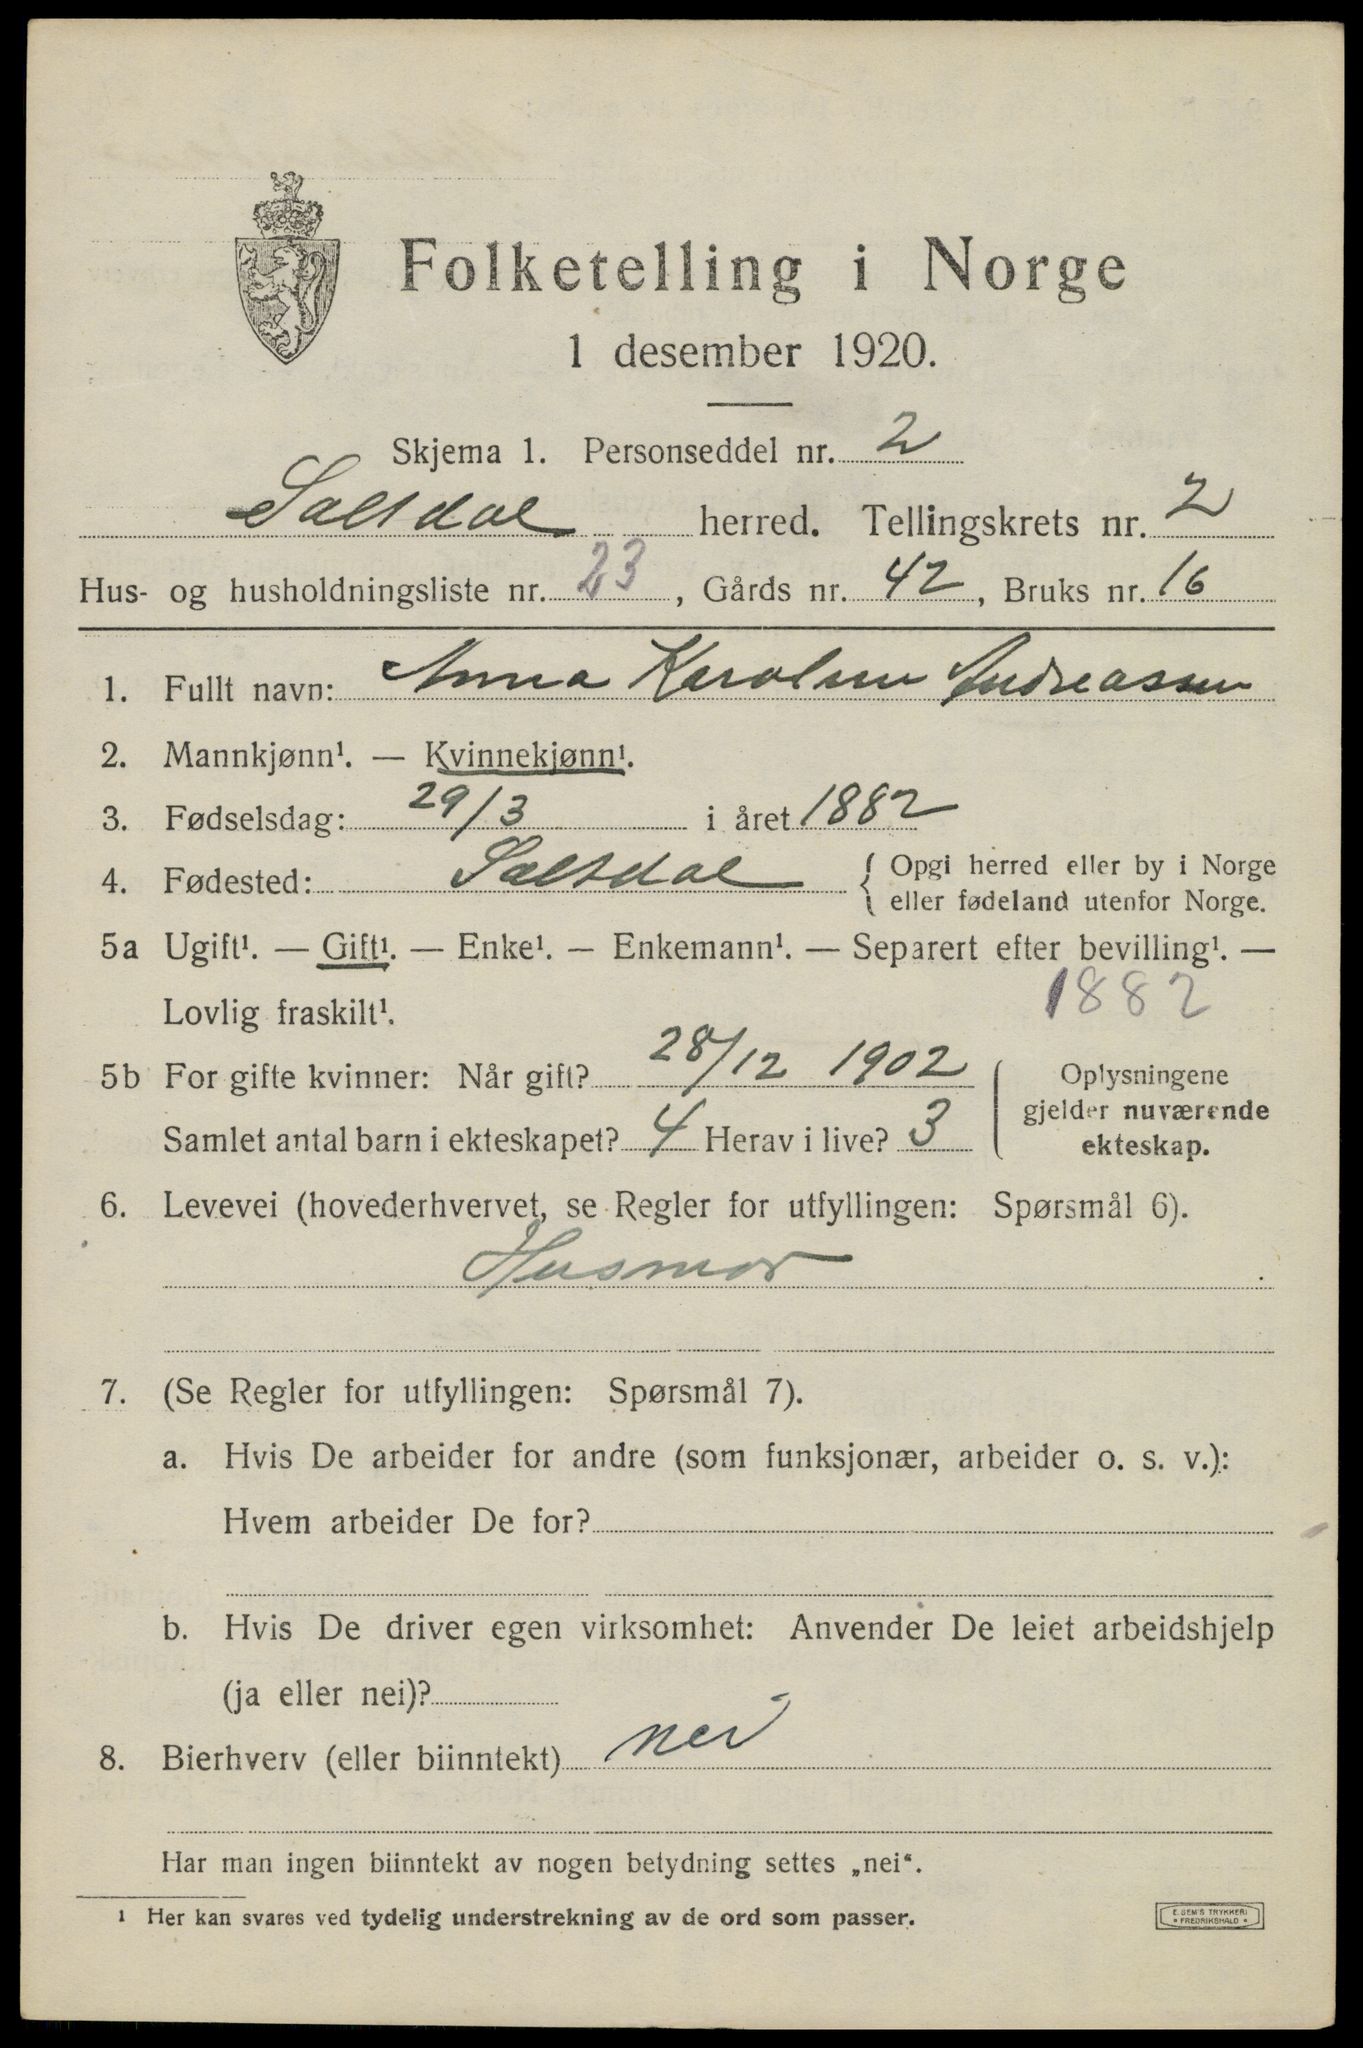 Folketelling i Norge
1 desember 1920.
Skjema 1. Personseddel nr. 2
Saltdal herred. Tellingskrets nr. 2
Hus- og husholdningsliste nr. 23, Gårds nr. 42, Bruks nr. 16
1. Fullt navn: Anna Karoline Andreassen
2. Mannkjønn¹. — Kvinnekjønn¹.
3. Fødselsdag: 29/3 i året 1882
4. Fødested: Saltdal { Opgi herred eller by i Norge
eller fødeland utenfor Norge.
5a Ugift¹. — Gift¹. — Enke¹. — Enkemann¹. — Separert efter bevilling¹. —
Lovlig fraskilt¹. 1882
5b For gifte kvinner: Når gift? 28/12 1902
Samlet antal barn i ekteskapet? 4 Herav i live? 3
Oplysningene
gjelder nuværende
ekteskap.
6. Levevei (hovederhvervet, se Regler for utfyllingen: Spørsmål 6).
Husmor
7. (Se Regler for utfyllingen: Spørsmål 7).
a. Hvis De arbeider for andre (som funksjonær, arbeider o. s. v.):
Hvem arbeider De for?
b. Hvis De driver egen virksomhet: Anvender De leiet arbeidshjelp
(ja eller nei)?
8. Bierhverv (eller biinntekt) nei
Har man ingen biinntekt av nogen betydning settes „nei“.
¹ Her kan svares ved tydelig understrekning av de ord som passer.
E. SEM'S TRYKKERI
* FREDRIKSHALD *